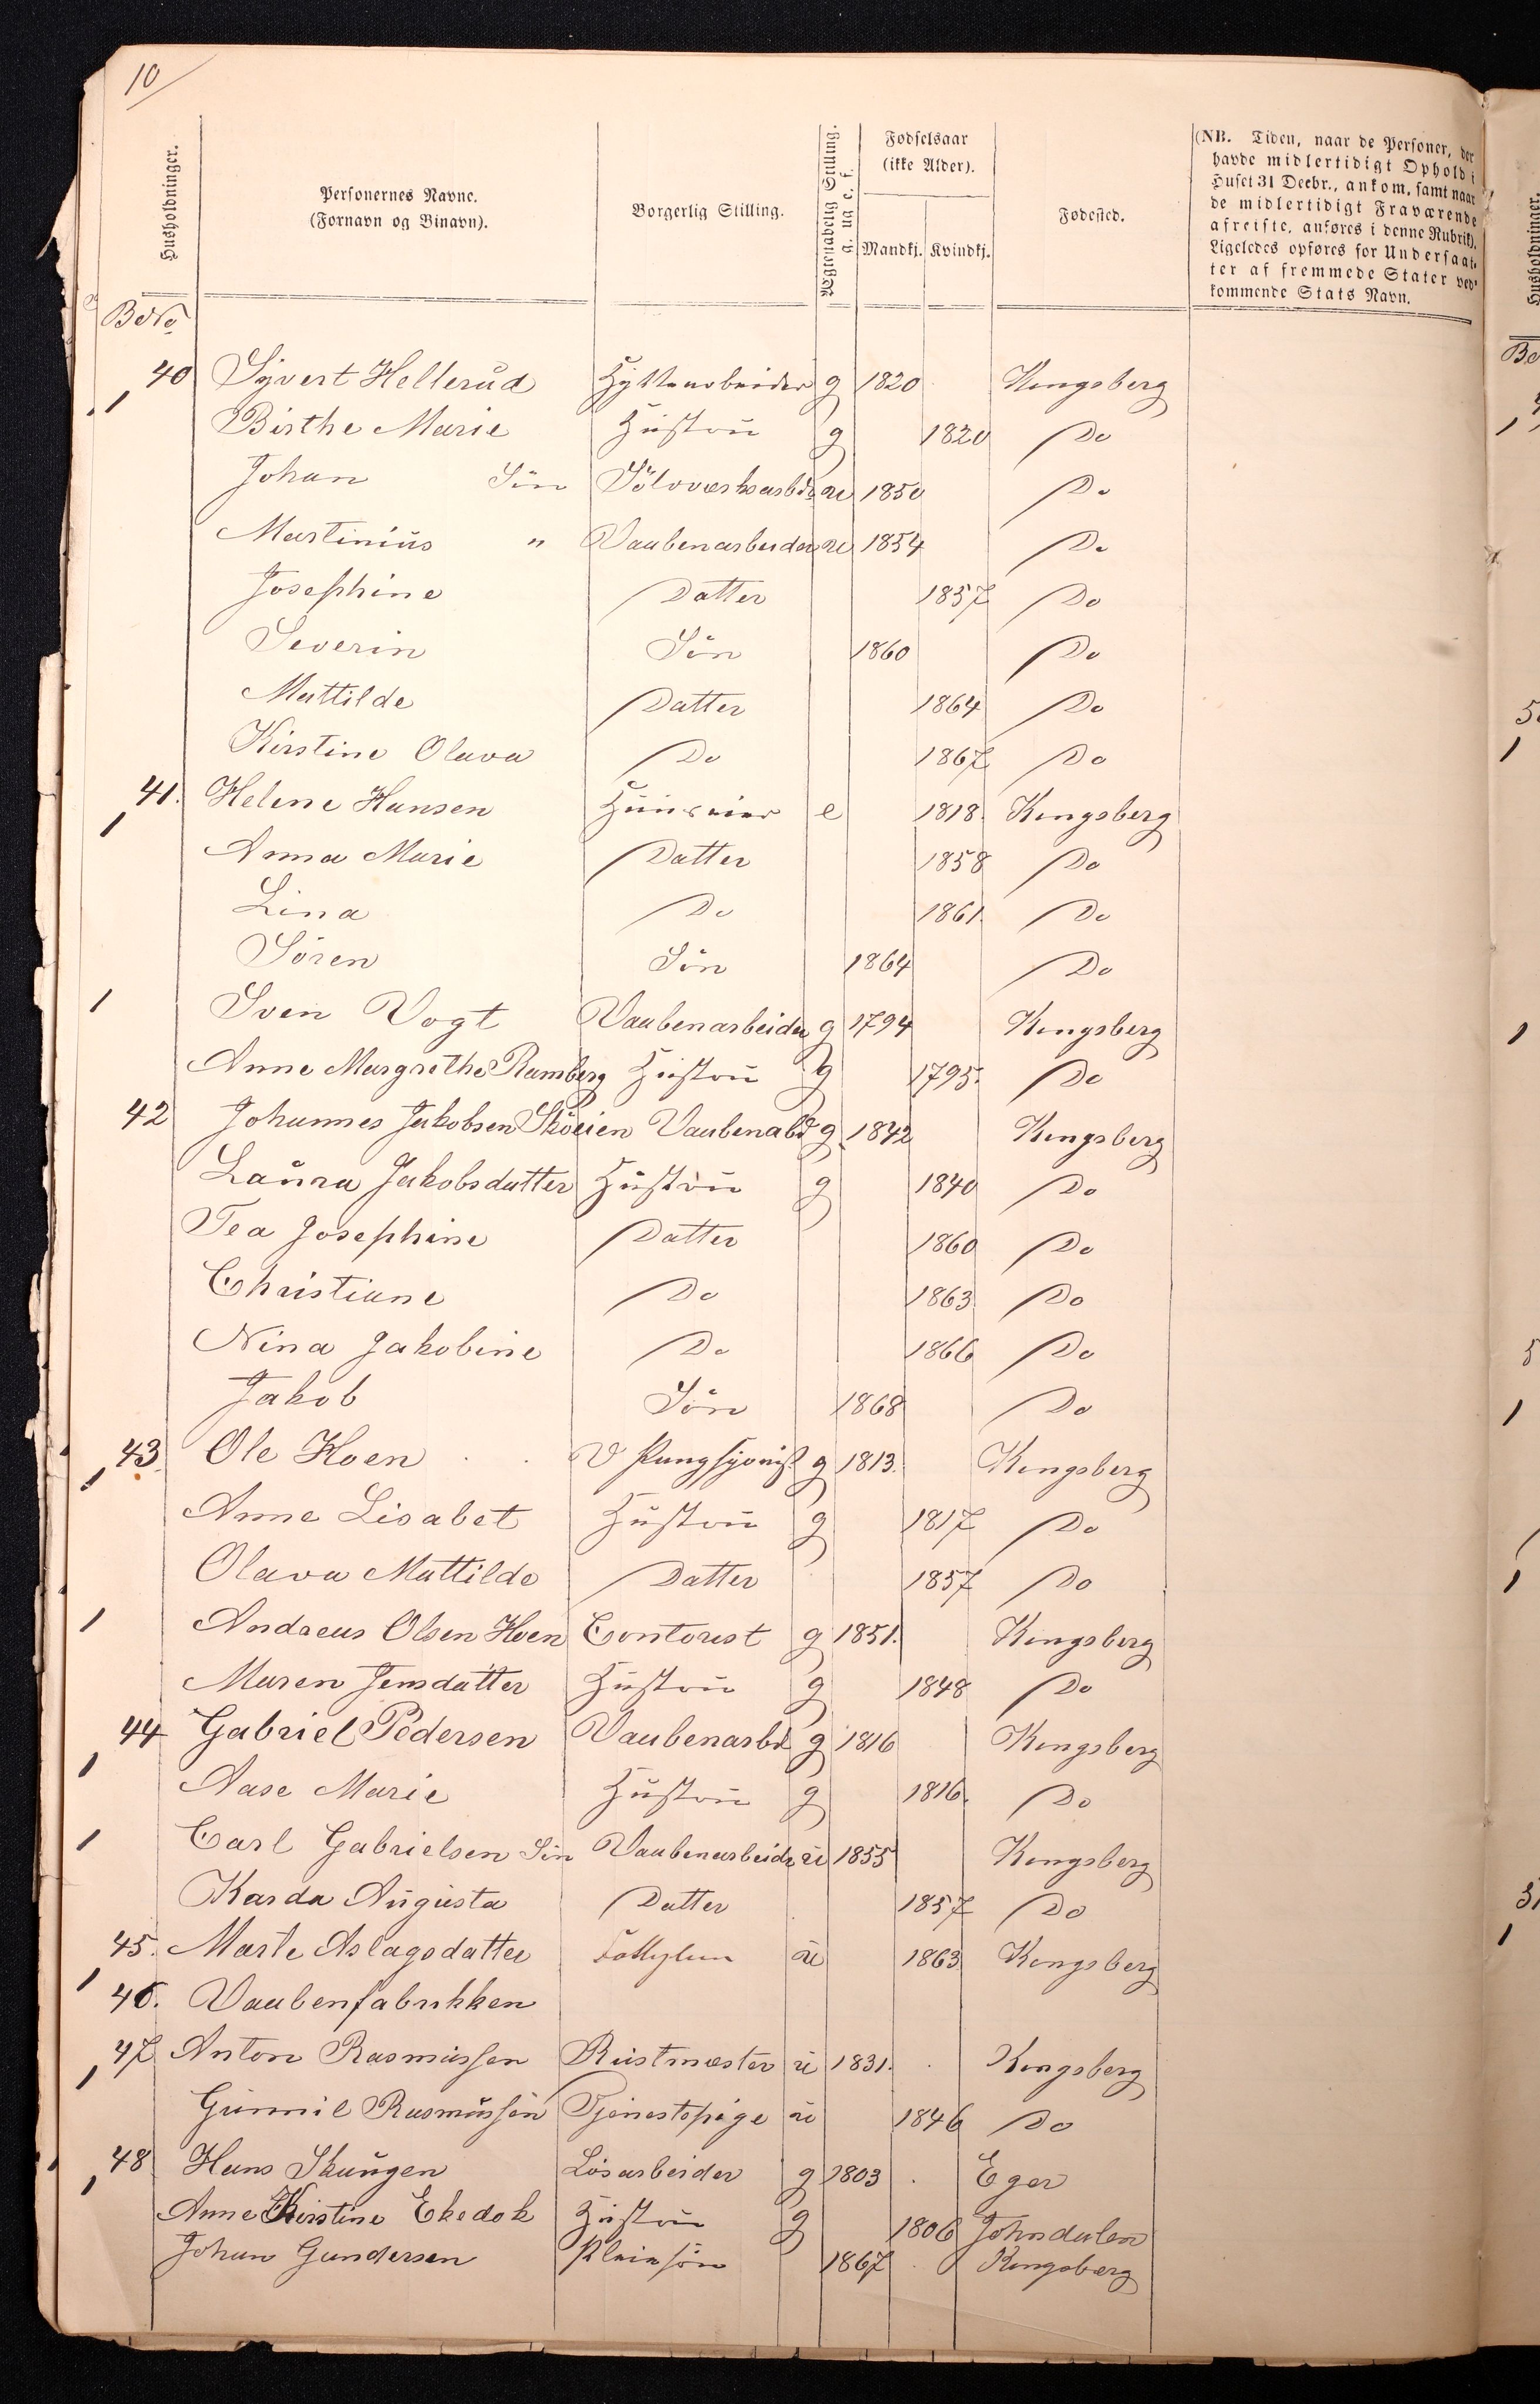 10
Husholdninger.
Personernes Navne.
(Fornavn og Binavn).
Borgerlig Stilling.
Ægteskabelig Stilling.
g. ug. e. f.
Fødselsaar
(ikke Alder).
Mandkj. Kvindkj.
Fødested.
(NB. Tiden, naar de Personer, der
havde midlertidigt Ophold i
Huset 31 Decbr., ankom, samt naar
de midlertidigt Fraværende
afreiste, anføres i denne Rubrik).
Ligeledes opføres for Undersaat-
ter af fremmede Stater ved-
kommende Stats Navn.
Bo No
40 Syvert Hellerud Hyttearbeider g 1820 Kongsberg
1
Birthe Marie Hustru g 1820 Do
Johan Sön Sölvværksarbdr u 1850 Do
Martinius " Vaabenarbeider u 1854 Do
Josephine Datter 1857 Do
Severin Sön 1860 Do
Mattilde Datter 1864 Do
Kirstine Olava Do 1867 Do
41. Helene Hansen Huuseier e 1818. Kongsberg
1
Anna Marie Datter 1858 Do
Lina Do 1861. Do
Sören Sön 1864 Do
1 Sven Vogt Vaabenarbeider g 1794 Kongsberg
Anne Margrethe Ramberg Hustru g 1795. Do
42 Johannes Jakobsen Sköien Vaabenabd g 1842 Kongsberg
Laura Jakobsdatter Hustru g 1840 Do
Tea Josephine Datter 1860 Do
Christiane Do 1863 Do
Nina Jakobine Do 1866 Do
Jakob Sön 1868 Do
43 Ole Hoen V Pungsjonist g 1813. Kongsberg
1
Anne Lisabet Hustru g 1817 Do
Olava Mattilde Datter 1857 Do
1 Andreas Olsen Hoen Contorist g 1851. Kongsberg
Maren Jensdatter Hustru g 1848 Do
44 Gabriel Pedersen Vaabenarbd g 1816 Kongsberg
1
Aase Marie Hustru g 1816. Do
1 Carl Gabrielsen Sön Vaabenarbeidr u 1855 Kongsberg
Karda Augusta Datter 1857 Do
45. Marte Aslagsdatter u 1863 Kongsberg
1
46. Vaabenfabrikken
47 Anton Rasmussen Rustmester u 1831. Kongsberg
1
Gunnil Rasmussen Tjenestepige u 1846 Do
48 Hans Skungen Lösarbeider g 1803 Eger
1
Anne Kirstine Ekedok Hustru g 1806 Johndalen
Johan Gundersen Pleiesön 1867 Kongsberg